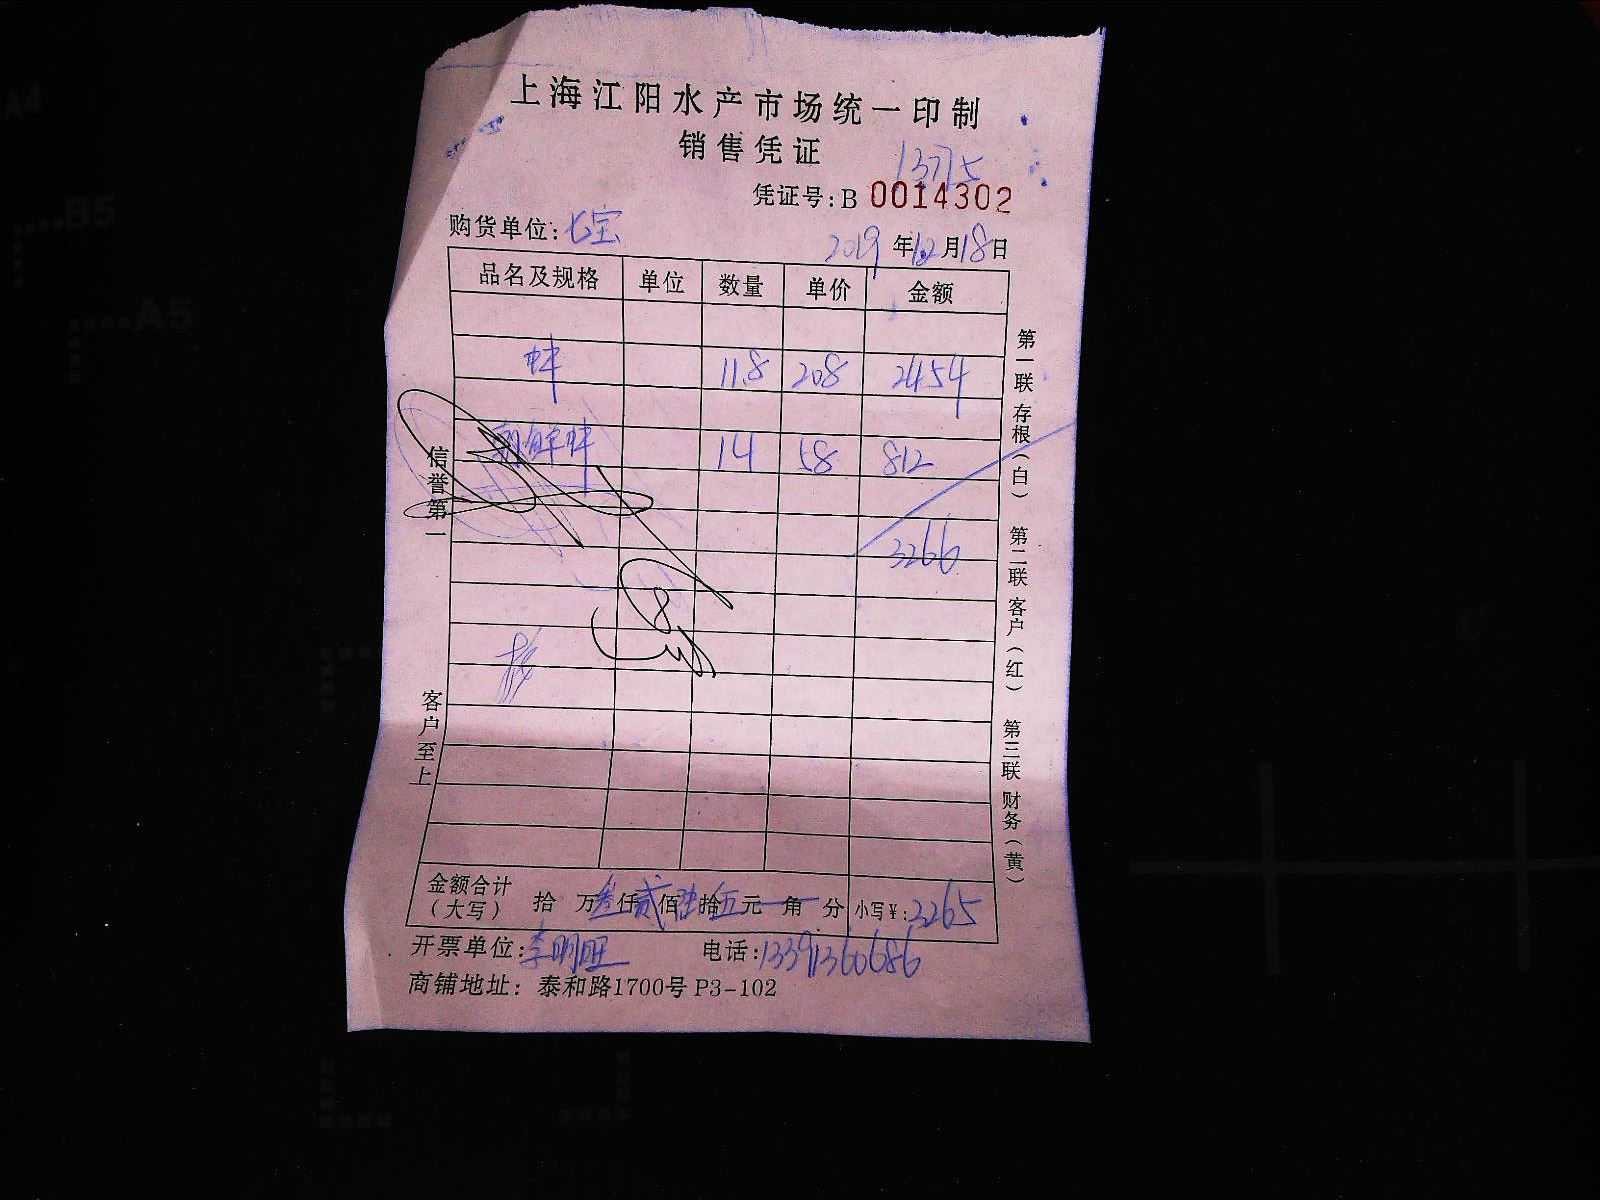 上海江阳水产市场统一印制
销售凭证
13775
凭证号:B 0014302
购货单位:七宝
2019年12月18日
品名及规格 单位 数量 单价 金额
蚌 11.8 208 2454
朝鲜蚌 14 58 812
3266
信誉第一
客户至上
第一联存根(白) 第二联客户(红) 第三联财务(黄)
金额合计(大写) 拾 万叁仟贰佰陆拾五元 角 分 小写¥:3265
开票单位:李明旺 电话:13391360686
商铺地址: 泰和路1700号 P3-102
A4
B5
A5